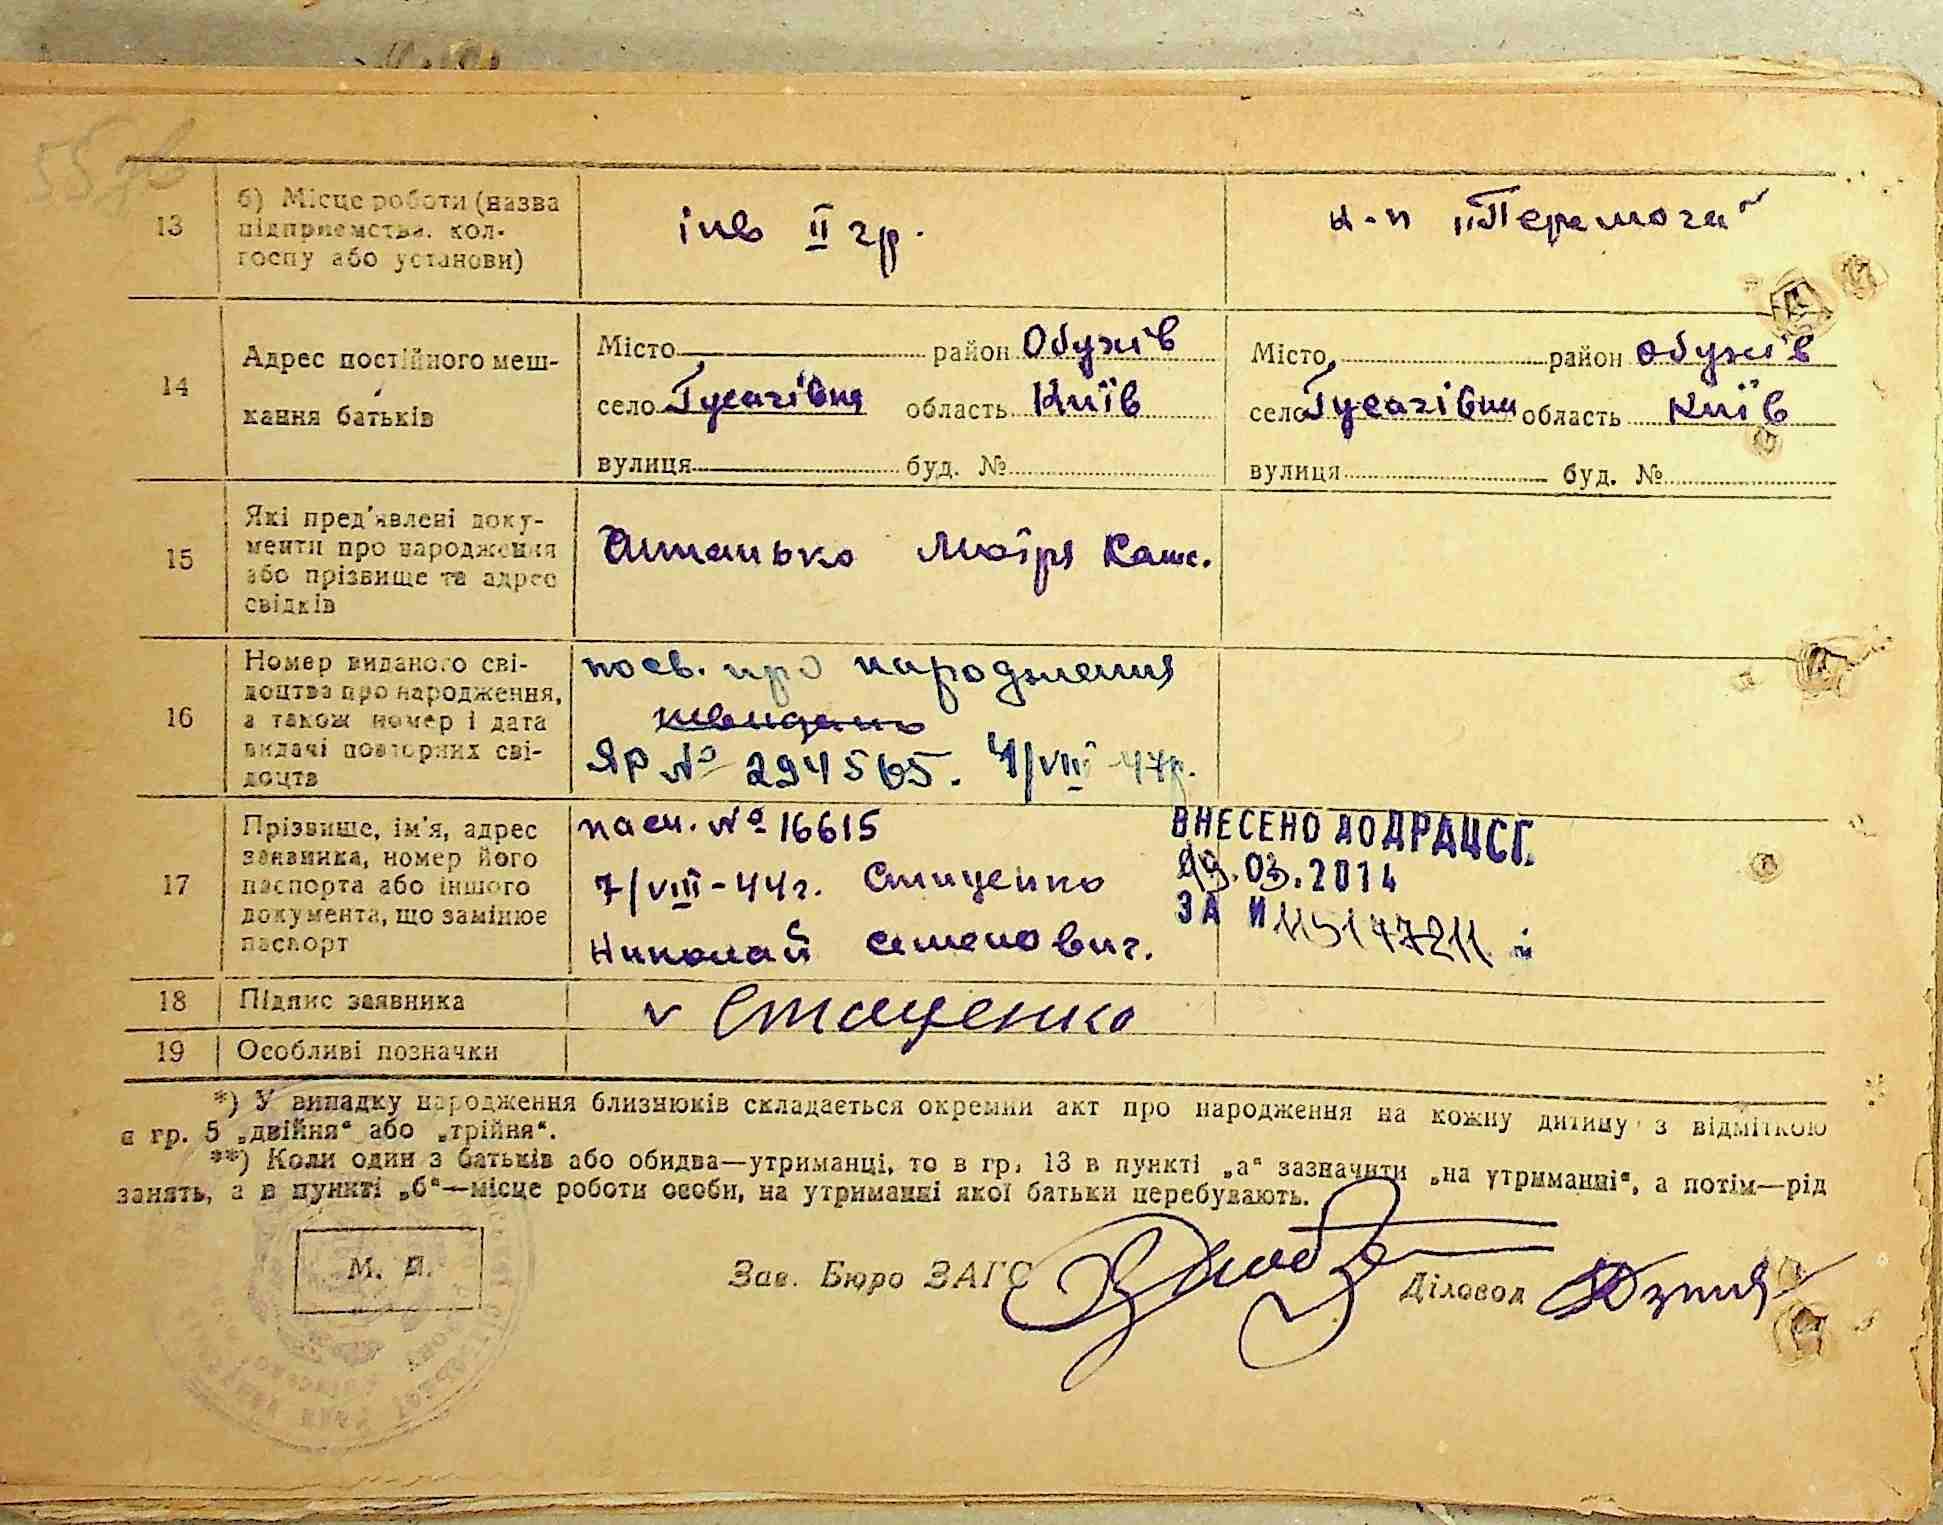 55зв
13
б) Місце роботи (назва
підприємства, кол-
госпу або установи)
інв II гр.
к-п „Перемога“
14
Адрес постійного меш-
кання батьків
Місто район Обухів
село Гусачівка область Київ
вулиця буд. №
Місто район Обухів
село Гусачівка область Київ
вулиця буд. №
15
Які пред'явлені доку-
менти про народження
або прізвище та адрес
свідків
16
Номер виданого сві-
доцтва про народження,
а також номер і дата
видачі повторних сві-
доцтв
посв. про народження
ЯР № 294565. 4/VIII 47р.
17
Прізвище, ім'я, адрес
заявника, номер його
паспорта або іншого
документа, що замінює
паспорт
№ 16615
7/VIII-44г. Стаценко
Николай Семенович.
ВНЕСЕНО ДО ДРАЦСГ.
.03.2014
ЗА №
18
Підпис заявника
v Стаценко
19
Особливі позначки
*) У випадку народження близнюків складається окремий акт про народження на кожну дитину з відміткою
в гр. 5 „двійня“ або „трійня“.
**) Коли один з батьків або обидва—утриманці, то в гр. 13 в пункті „а“ зазначити „на утриманні“, а потім—рід
занять, а в пункті „б“—місце роботи особи, на утриманні якої батьки перебувають.
М. П.
Зав. Бюро ЗАГС
Діловод